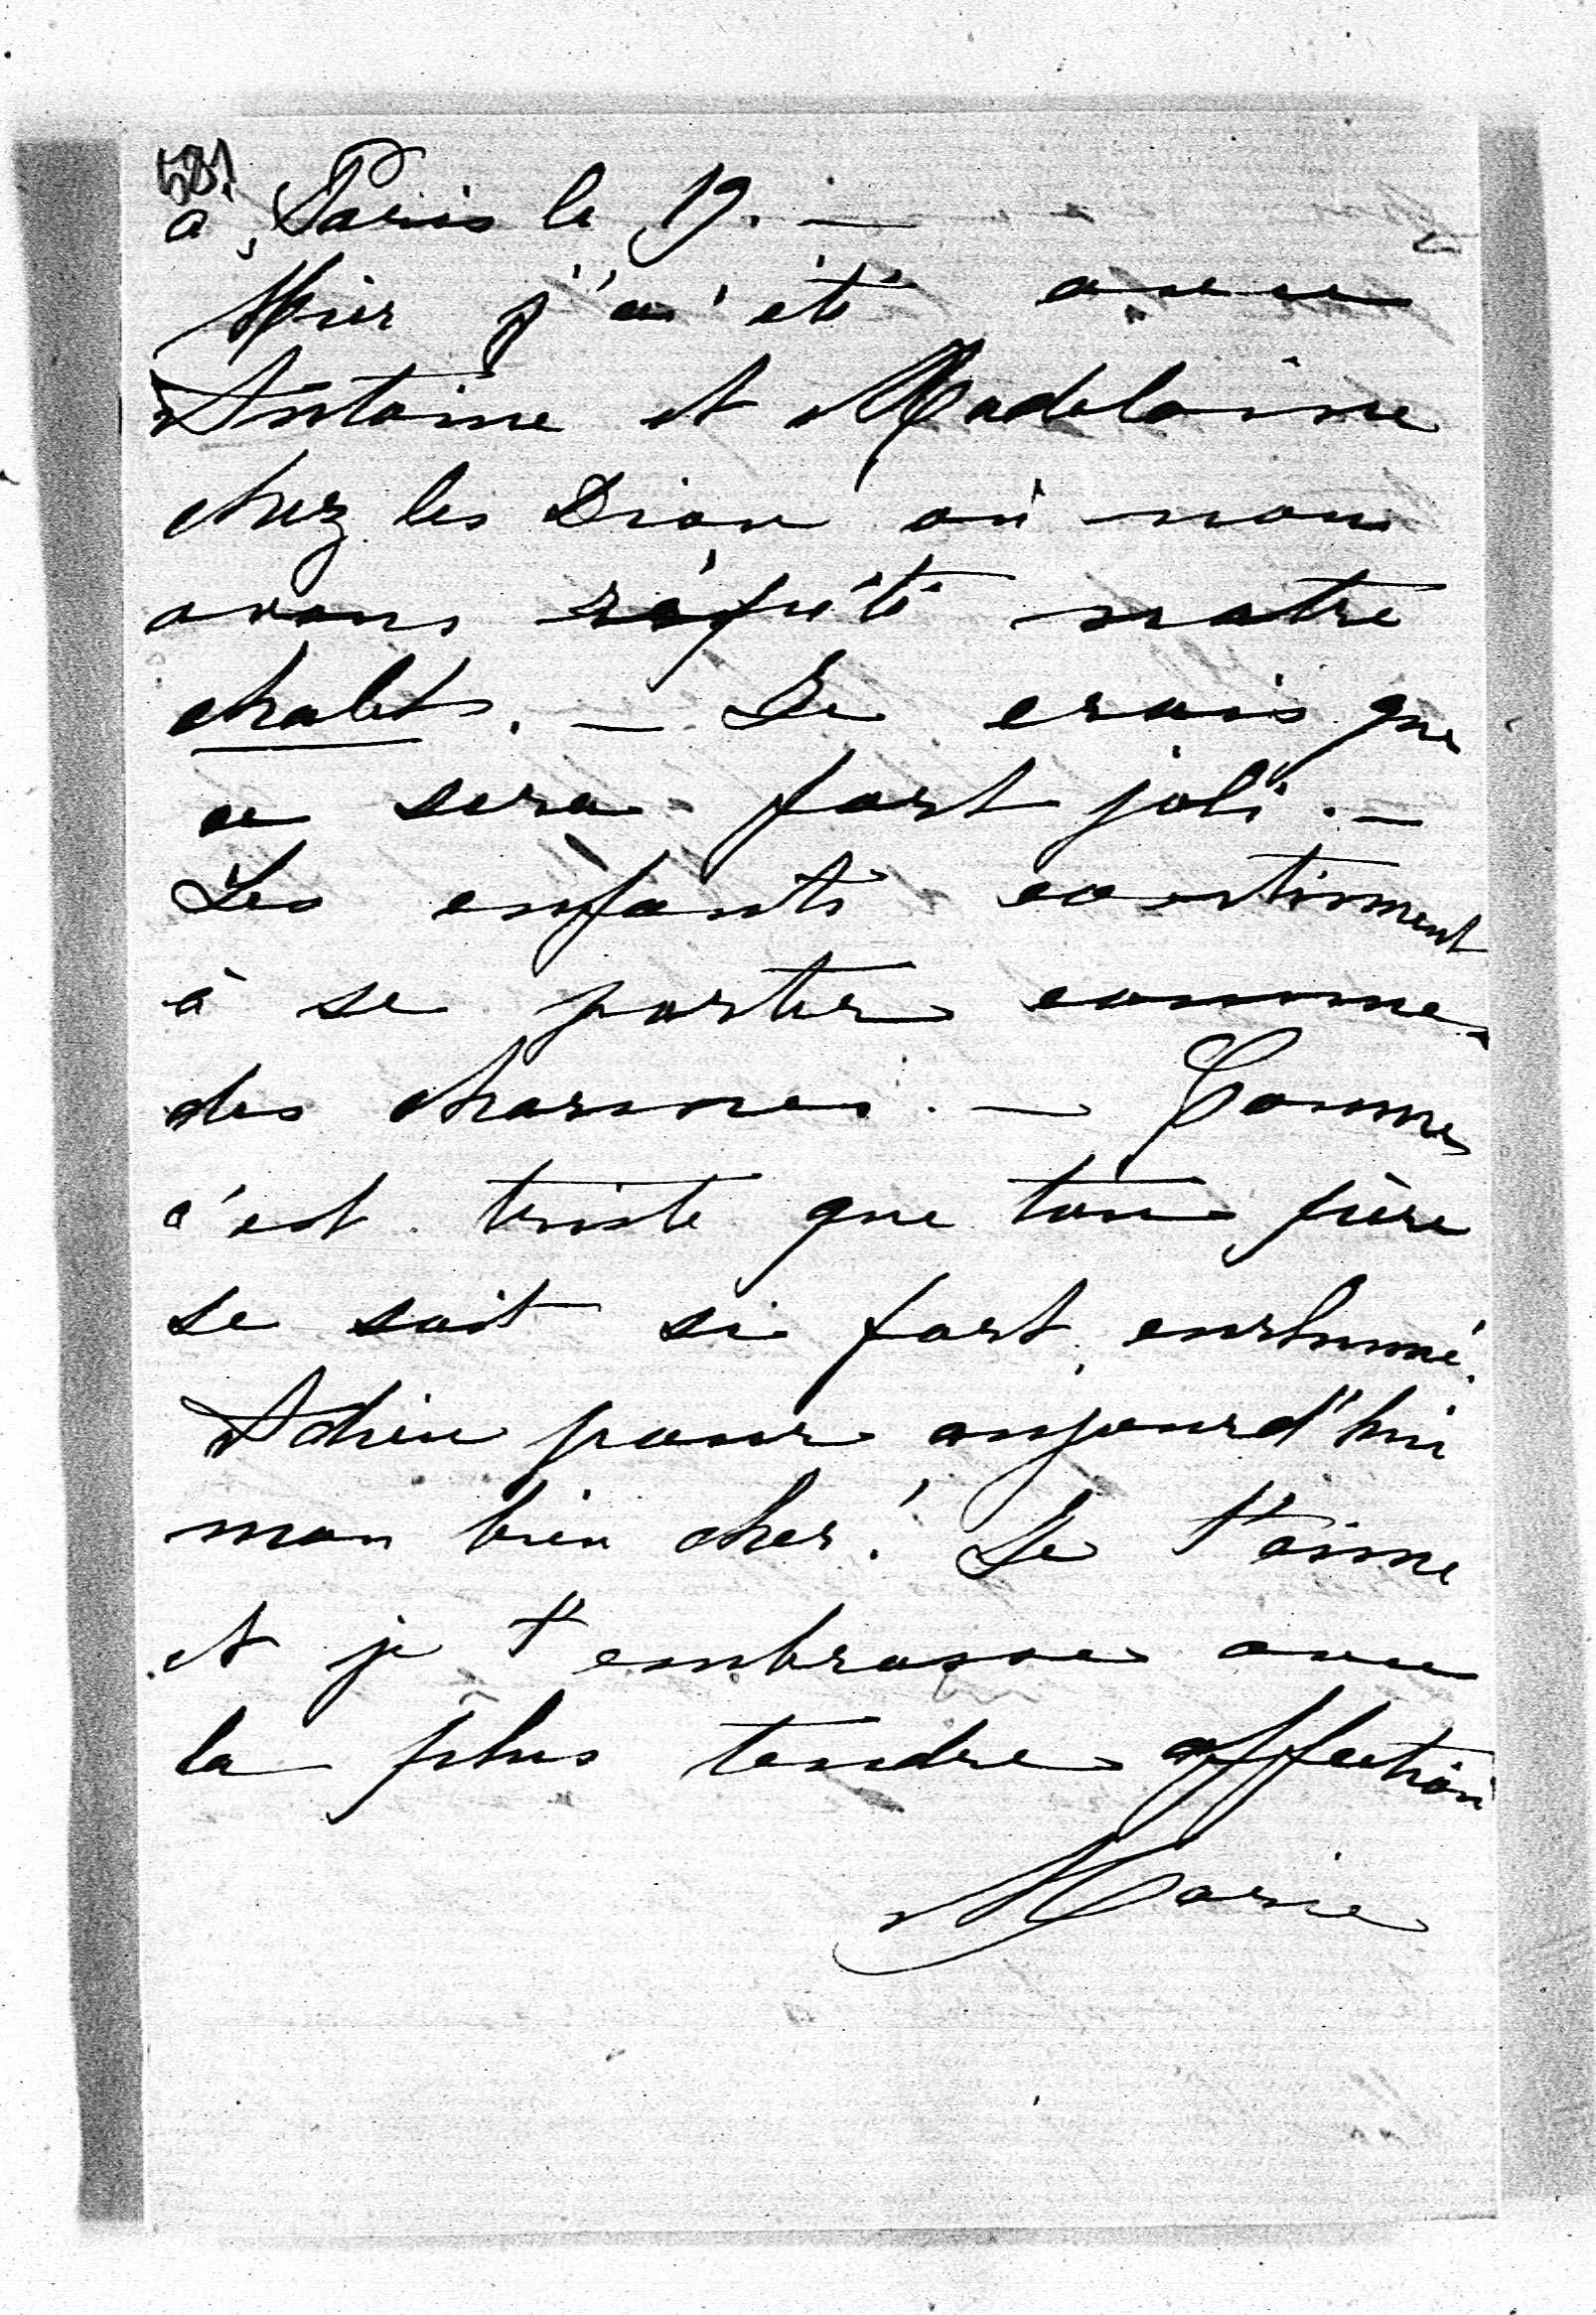 581
à Paris le 19. —
Hier j'ai été avec
Antoine et Madelaine
chez les Dion où nous
avons répété notre
chalets. — Je crois que
ce sera fort joli. —
Les enfants continuent
à se porter comme
des charmes. — Comme
c'est triste que ton père
se soit si fort enrhumé.
Adieu pour aujourd'hui
mon bien cher! Je t'aime
et je t'embrasse avec
la plus tendre affection
Marie